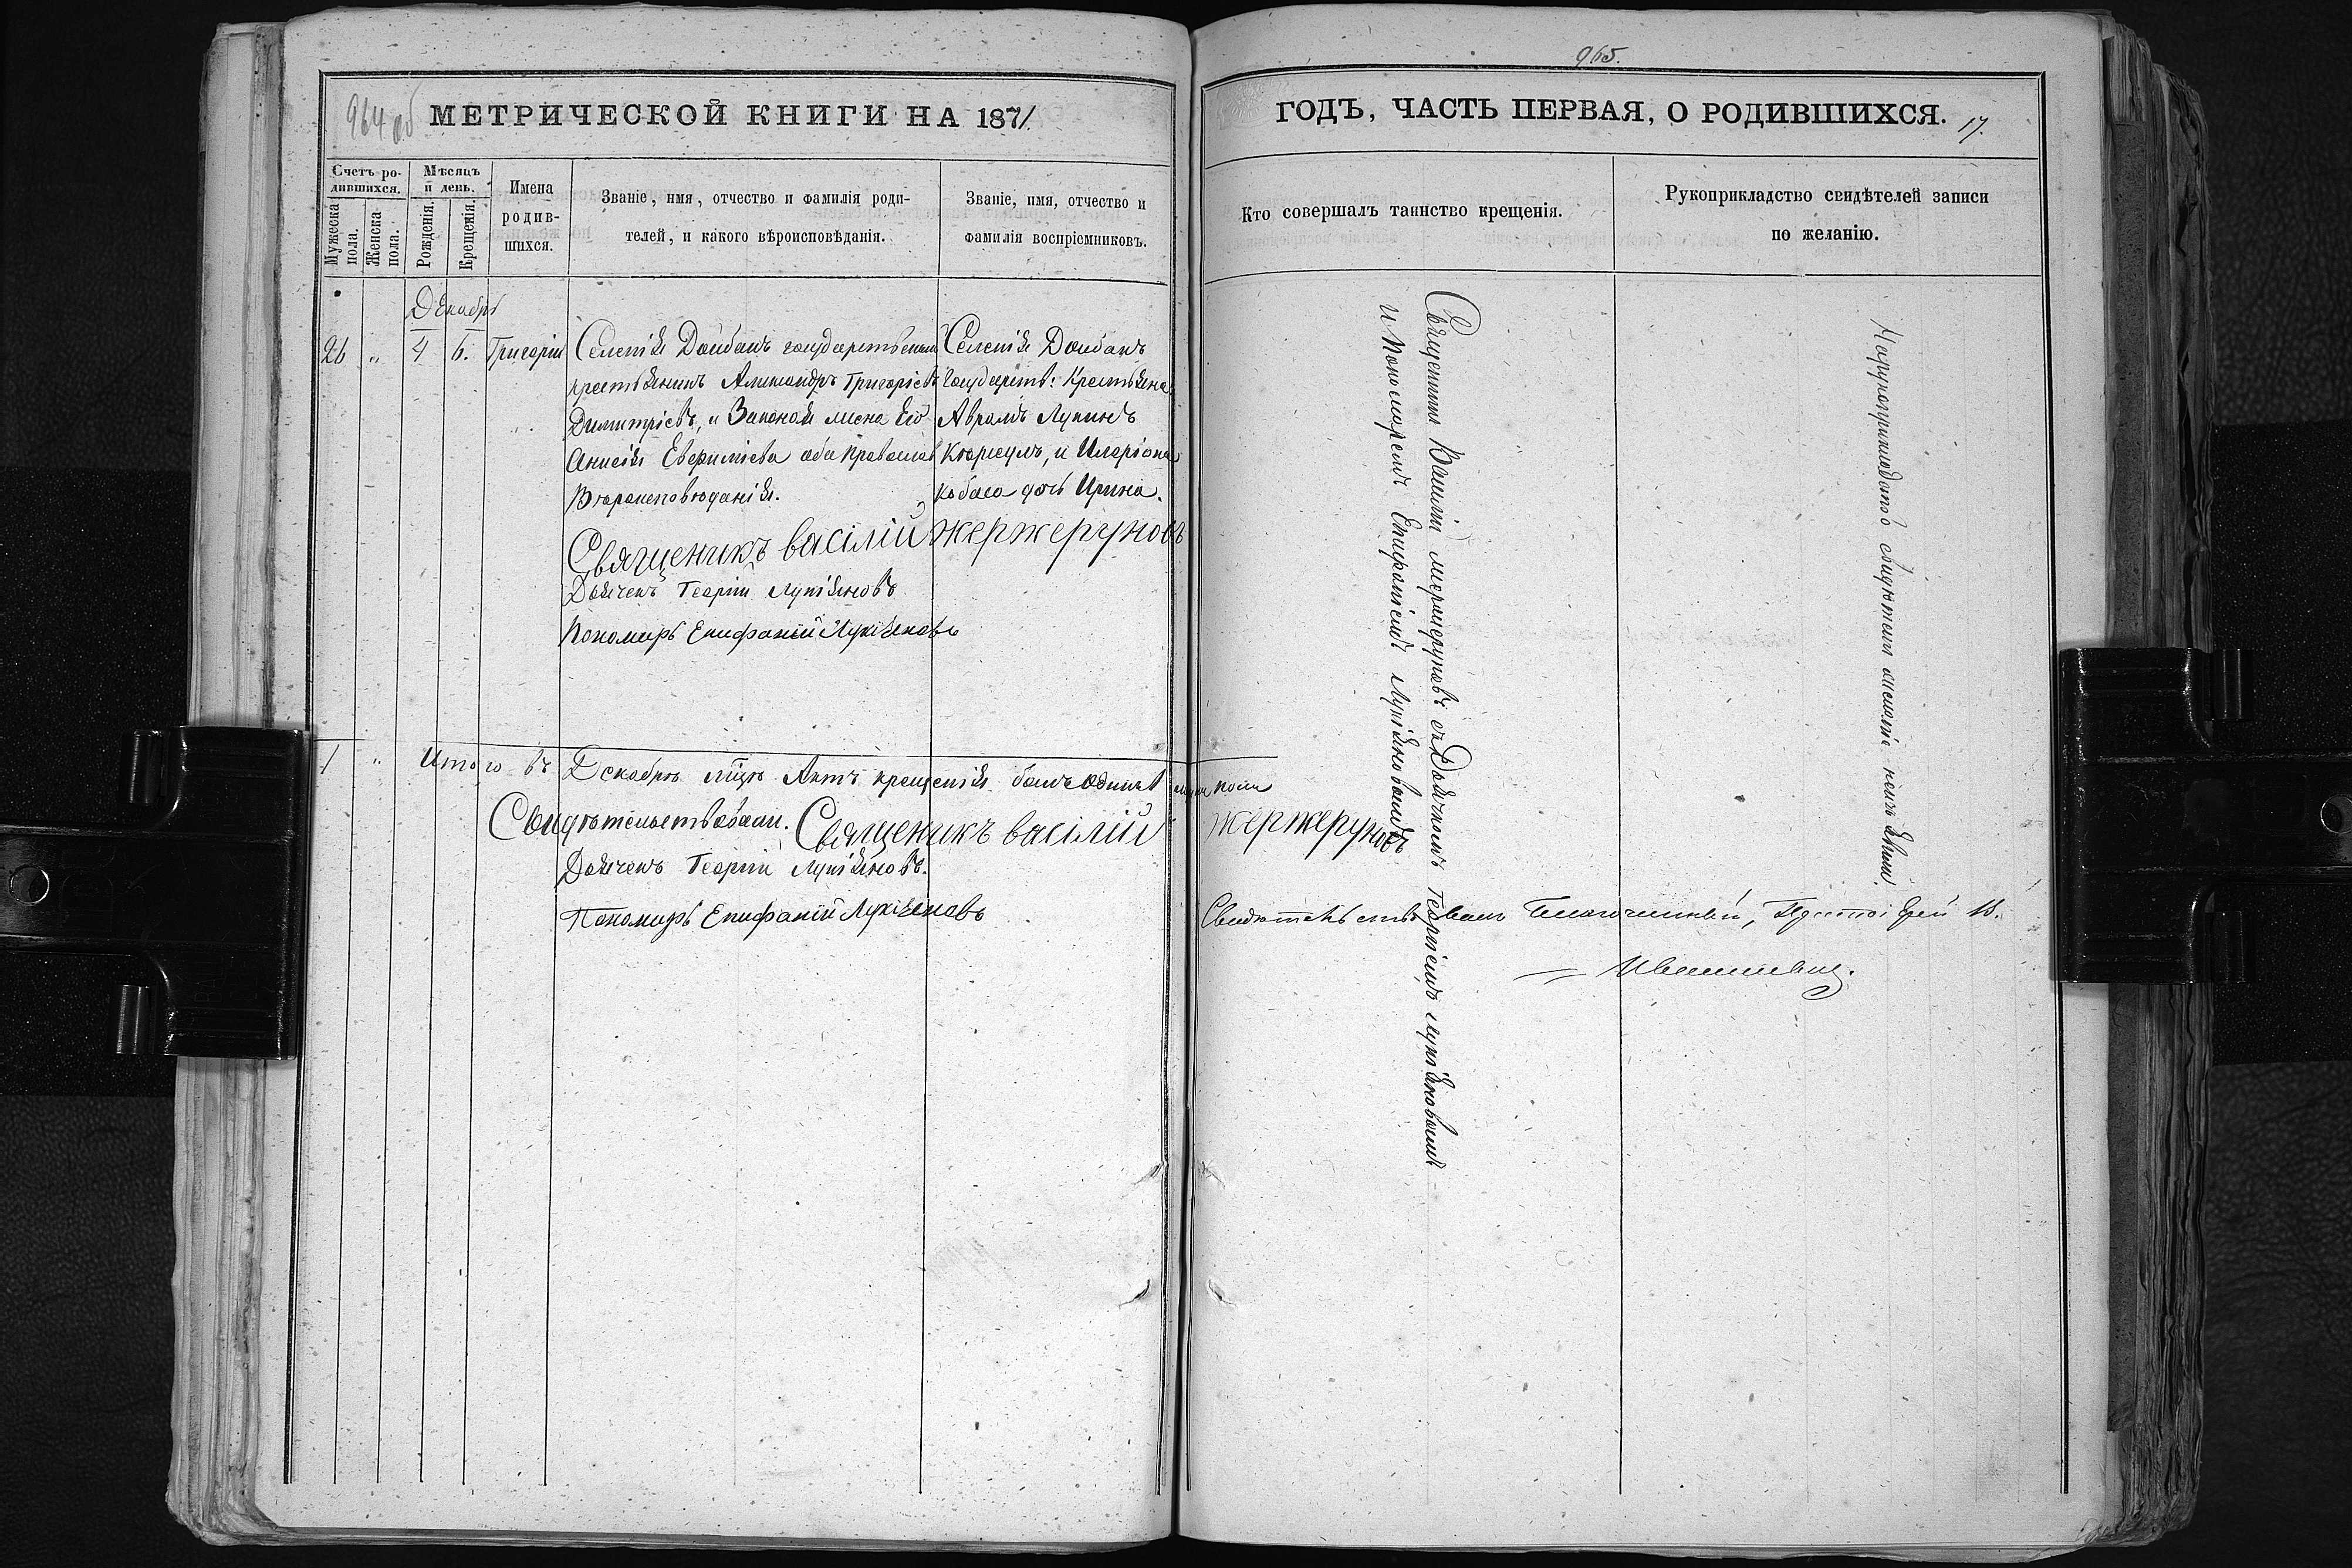 964 об
МЕТРИЧЕСКОЙ КНИГИ НА 1871.
Счетъ ро-
дившихся.
Мужеска
пола.
Женска
пола.
Мѣсяцъ
и день.
Рожденія.
Крещенія.
Имена
родив-
шихся.
Званіе, имя, отчество и фамилія роди-
телей, и какого вѣроисповѣданія.
Званіе, имя, отчество и
фамилія воспріемниковъ.
Декабрь
26 „ 4 6. Григорій
Селенія Данбанъ государственный
крестьянинъ Александръ Григоріевъ
Димитріевъ, и Законая жена Его
Анисія Евфиміева оба Православ
Вѣроисповѣданія.
Селенія Данбанъ
Государств: Крестьянинъ
Аврамъ Лукинъ
и Иларіона
дочь Ирина.
Священикъ василій жержеруновъ
Дьячекъ Георгій Лукіяновъ
Пономарь Епифаній Лукіяновъ
1 „ Итого въ Декабрѣ Мцѣ Актъ крещенія былъ одинъ 1 муж пола
Свидѣтельствовали. Священикъ василій жержеруновъ
Дьячекъ Георгій Лукіяновъ.
Пономарь Епифаній Лукіяновъ
965.
ГОДЪ, ЧАСТЬ ПЕРВАЯ, О РОДИВШИХСЯ. 17.
Кто совершалъ таинство крещенія.
Рукоприкладство свидѣтелей записи
по желанію.
Священникъ Василій жержеруновъ съ Дьячкомъ Георгіемъ Лукіяновымъ
и Пономаремъ Епифаніемъ Лукіяновымъ
свидѣтели
Свидѣтельствовалъ Благочинный, Протоіерей